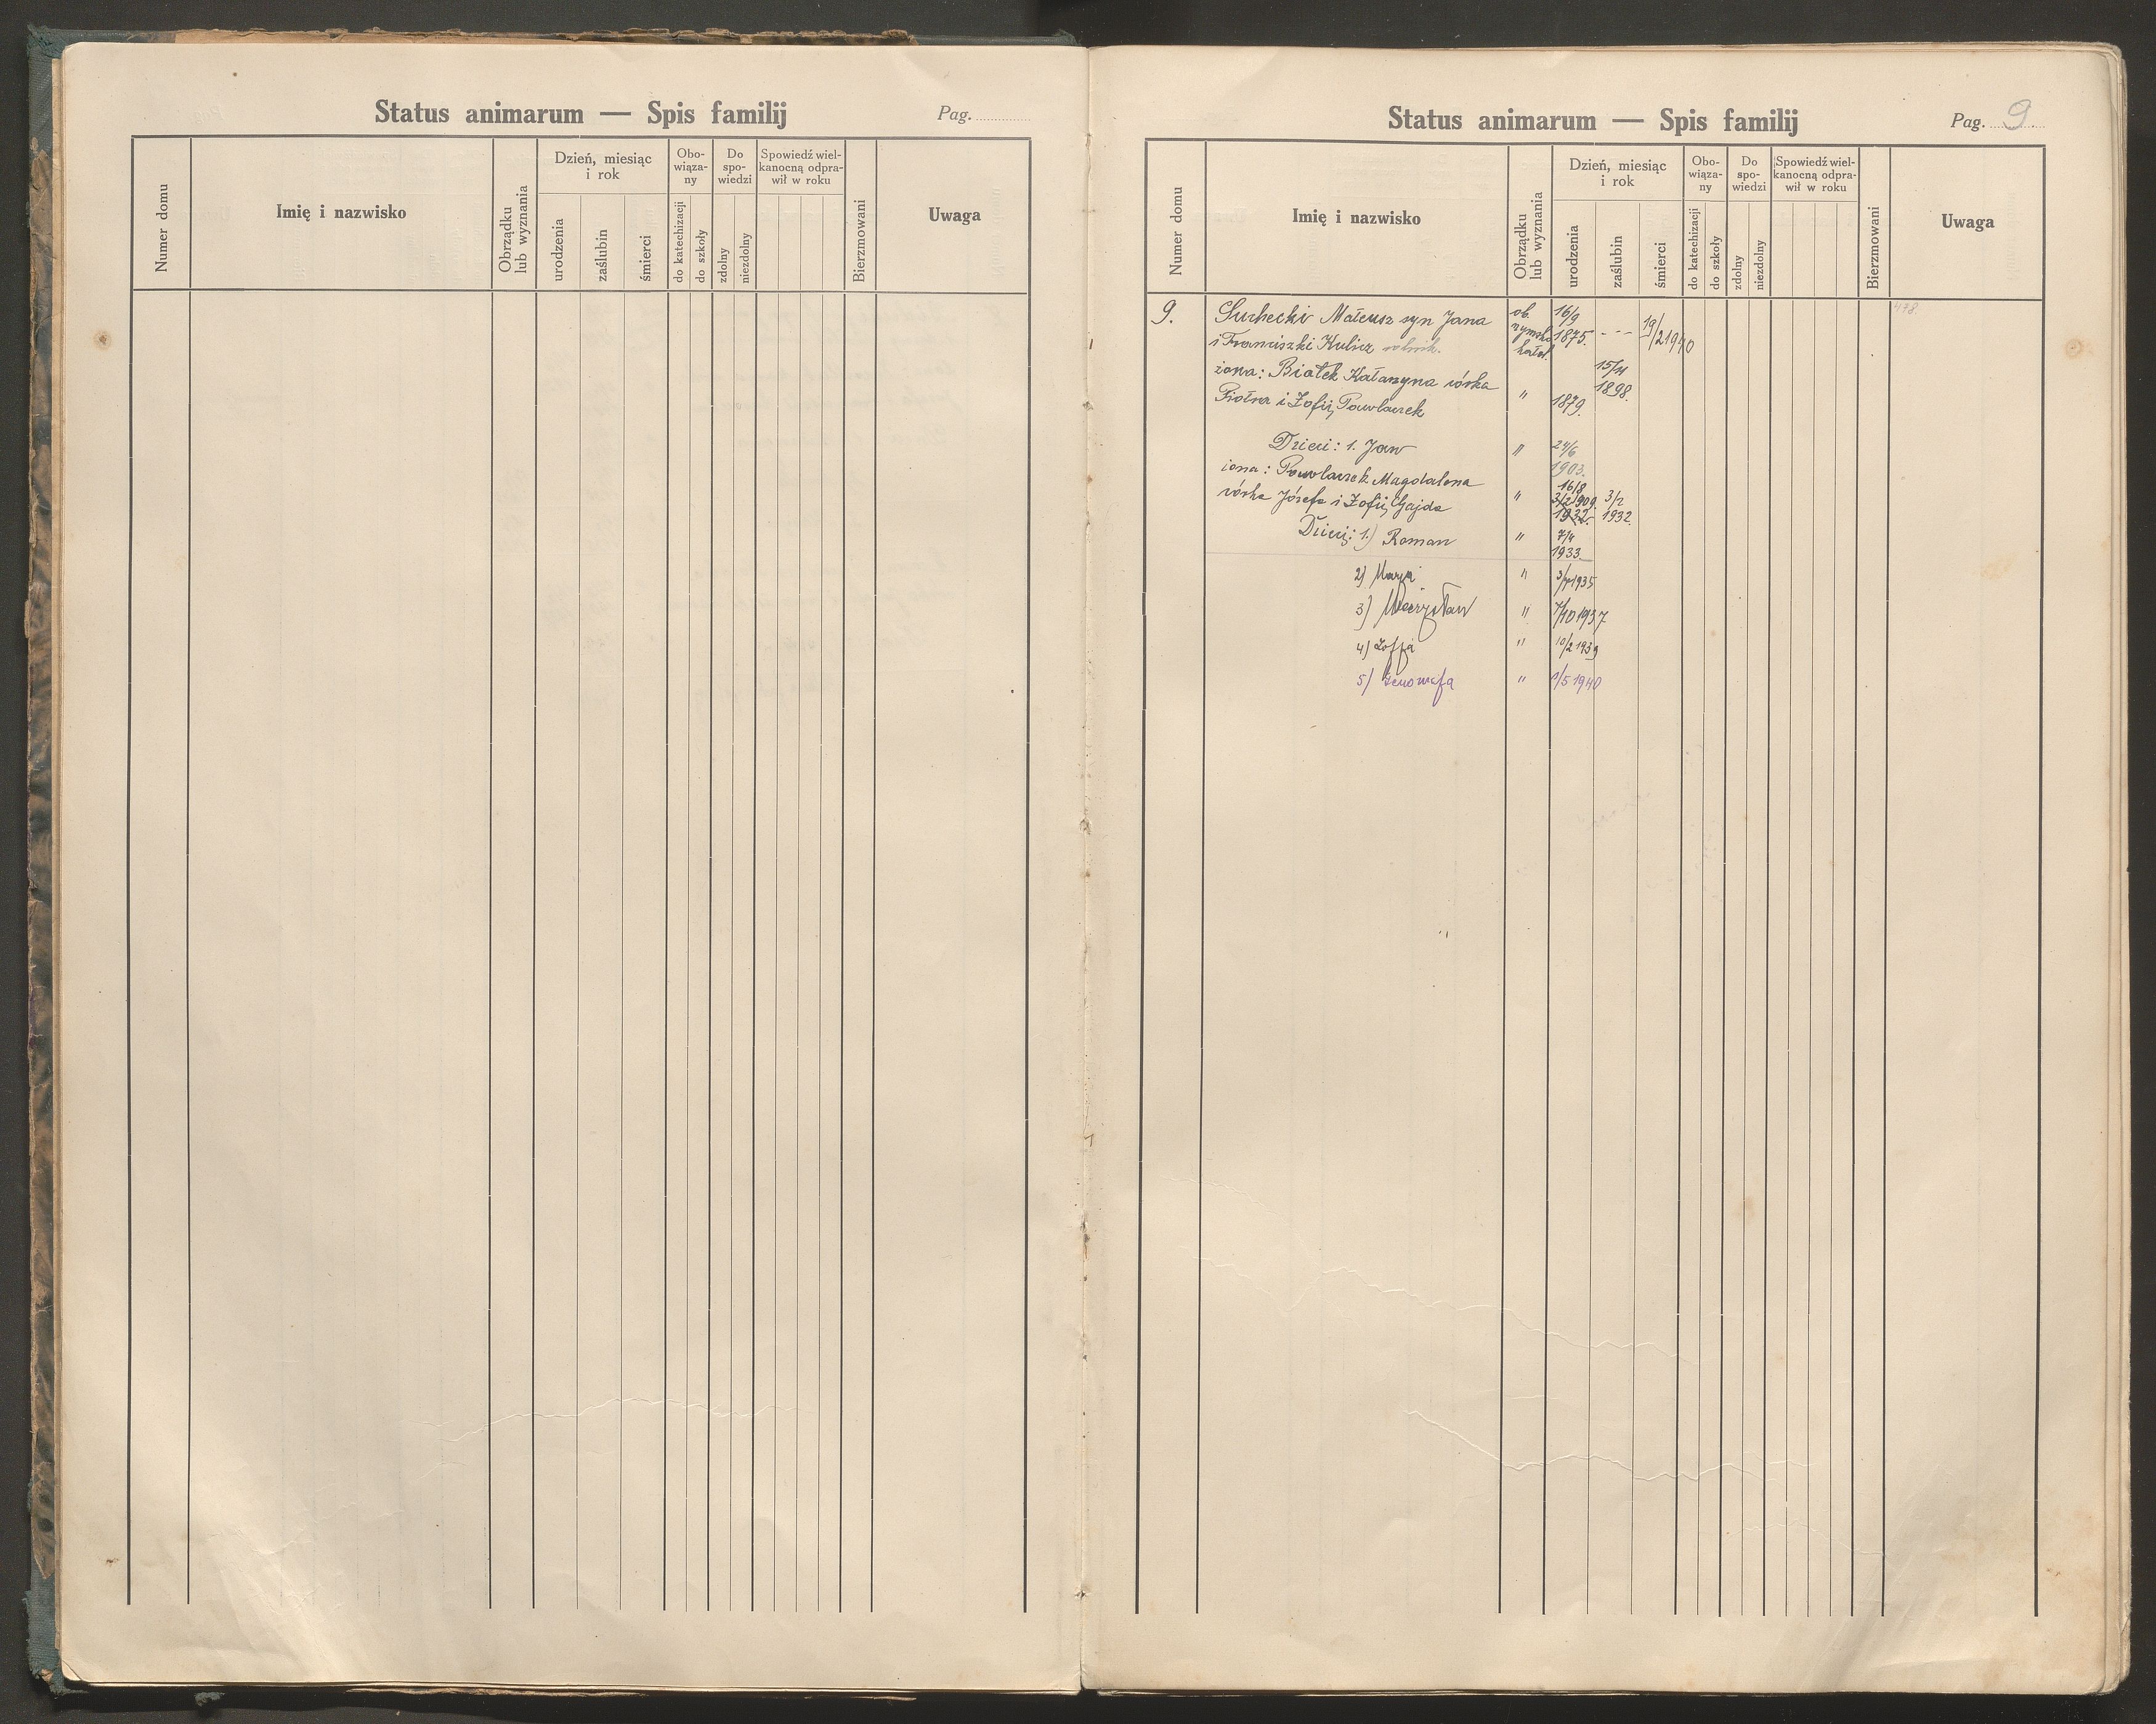 Status animarum — Spis familij
Pag.
Numer domu
Imię i nazwisko
Obrządku lub wyznania
Dzień, miesiąc i rok
urodzenia
zaślubin
śmierci
Obo-wiąza-ny
do katechizacji
do szkoły
Do spo-wiedzi
zdolny
niezdolny
Spowiedź wiel-kanocną odpra-wił w roku
Bierzmowani
Uwaga
Status animarum — Spis familij
Pag. 9
Numer domu
Imię i nazwisko
Obrządku lub wyznania
Dzień, miesiąc i rok
urodzenia
zaślubin
śmierci
Obo-wiąza-ny
do katechizacji
do szkoły
Do spo-wiedzi
zdolny
niezdolny
Spowiedź wiel-kanocną odpra-wił w roku
Bierzmowani
Uwaga
9. Suchecki Mateusz syn Jana ob. 16/9
i Franciszki Kulisz rolnik. rymsko 1875. - - - 19/2 1940
katol.
żona: Białek Katarzyna córka 15/11 1898.
Piotra i Zofii Pawlaczek " 1879.
Dzieci: 1. Jan " 24/6 1903.
żona: Pawlaczek Magdalena 16/8
córka Józefa i Zofii Gajda " 3/2 1909. 3/2
1932. 1932.
Dzieci: 1.) Roman " 7/4 1933.
2) Marja " 3/7 1935
3) Mieczysław " 7/10 1937
4) Zofja " 10/2 1939
5) Genowefa " 1/5 1940
478